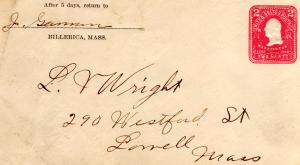 After 5 days, return to
BILLERICA, MASS.
UNITED STATES POSTAGE
2 2
WASHINGTON
TWO CENTS
L V Wright
290 Westford St
Lowell
Mass